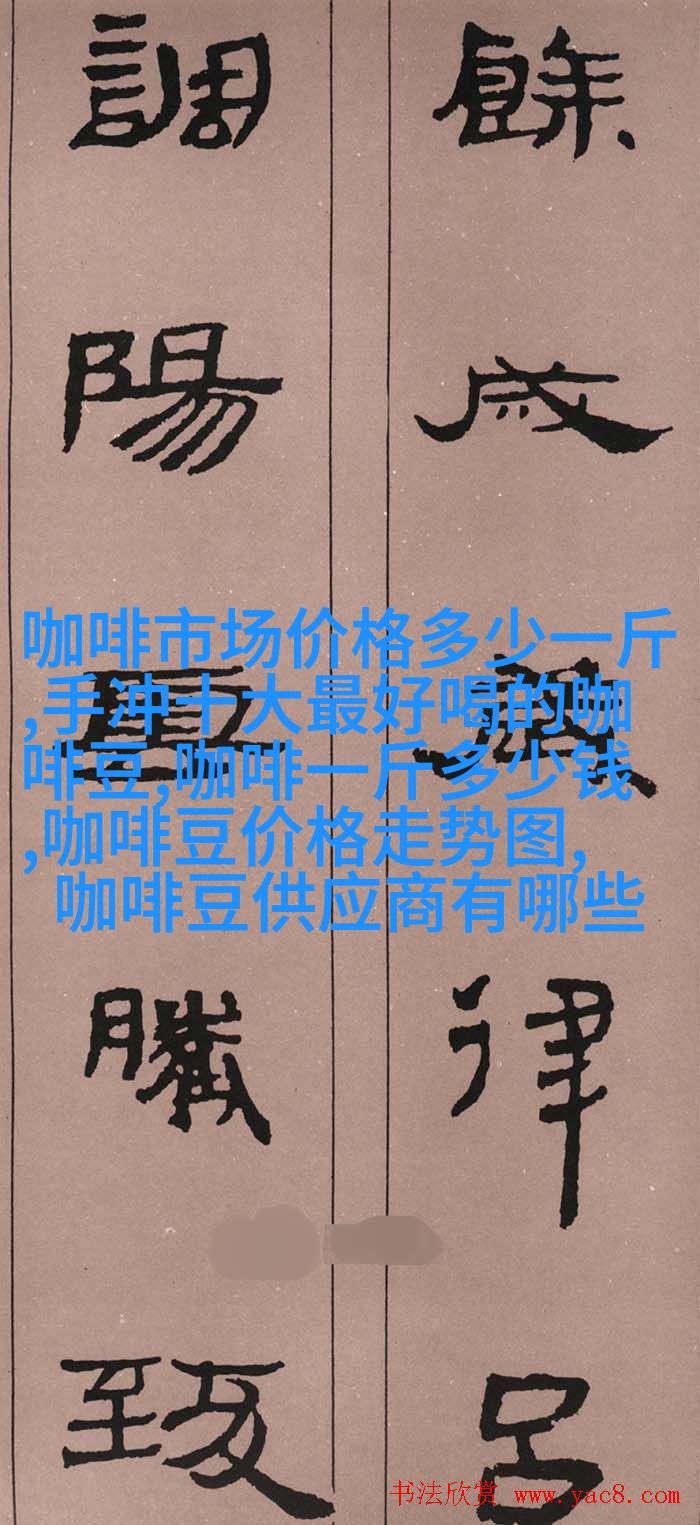 餘成歲律呂
調陽雲騰致
咖啡市场价格多少一斤
,手冲十大最好喝的咖
啡豆,咖啡一斤多少钱
,咖啡豆价格走势图,
咖啡豆供应商有哪些
书法欣赏 www.yac8.com